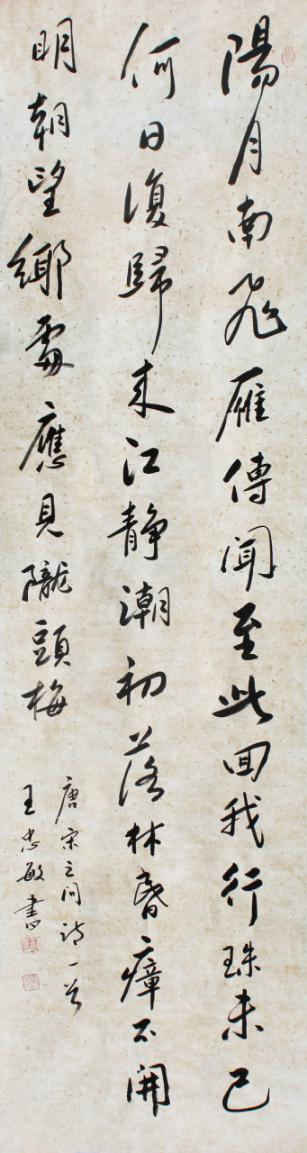 陽月南飛雁傳聞至此回我行殊未已
何日復歸來江靜潮初落林昏瘴不開
明朝望鄉處應見隴頭梅
唐宋之问诗一首
王忠敏書